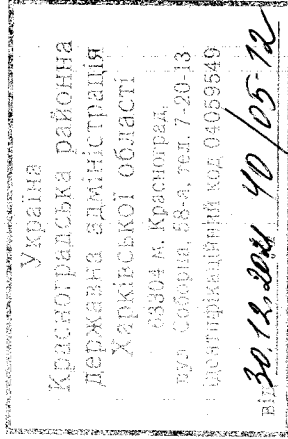 Україна
Красноградська районна
державна адміністрація
Харківської області
63304 м. Красноград,
вул. Соборна, 58-а, тел. 7-20-13
Ідентифікаційний код 04059549
від 30.12.2021 40/05-12